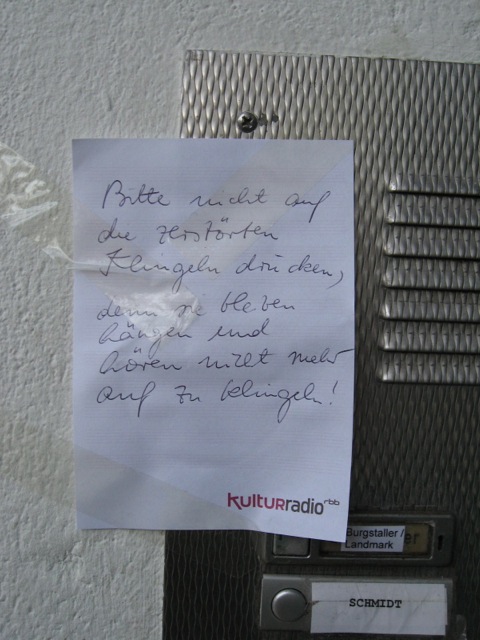 Bitte nicht auf
die zerstörten
Klingeln drücken,
denn sie bleben
hängen und
hören nicht mehr
auf zu klingeln!
kulturradio rbb
Burgstaller /
Landmark
er
SCHMIDT